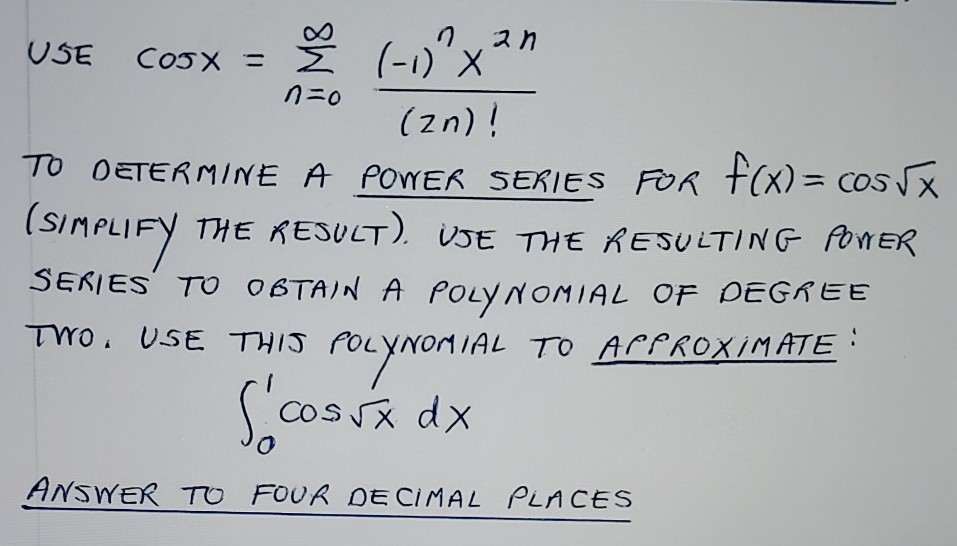 USE COSX = ∞ Σ n=0 (-1)^n x^2n / (2n)!
TO DETERMINE A POWER SERIES FOR f(x) = cos√x
(SIMPLIFY THE RESULT). USE THE RESULTING POWER
SERIES TO OBTAIN A POLYNOMIAL OF DEGREE
TWO. USE THIS POLYNOMIAL TO APPROXIMATE:
∫₀¹ cos√x dx
ANSWER TO FOUR DECIMAL PLACES